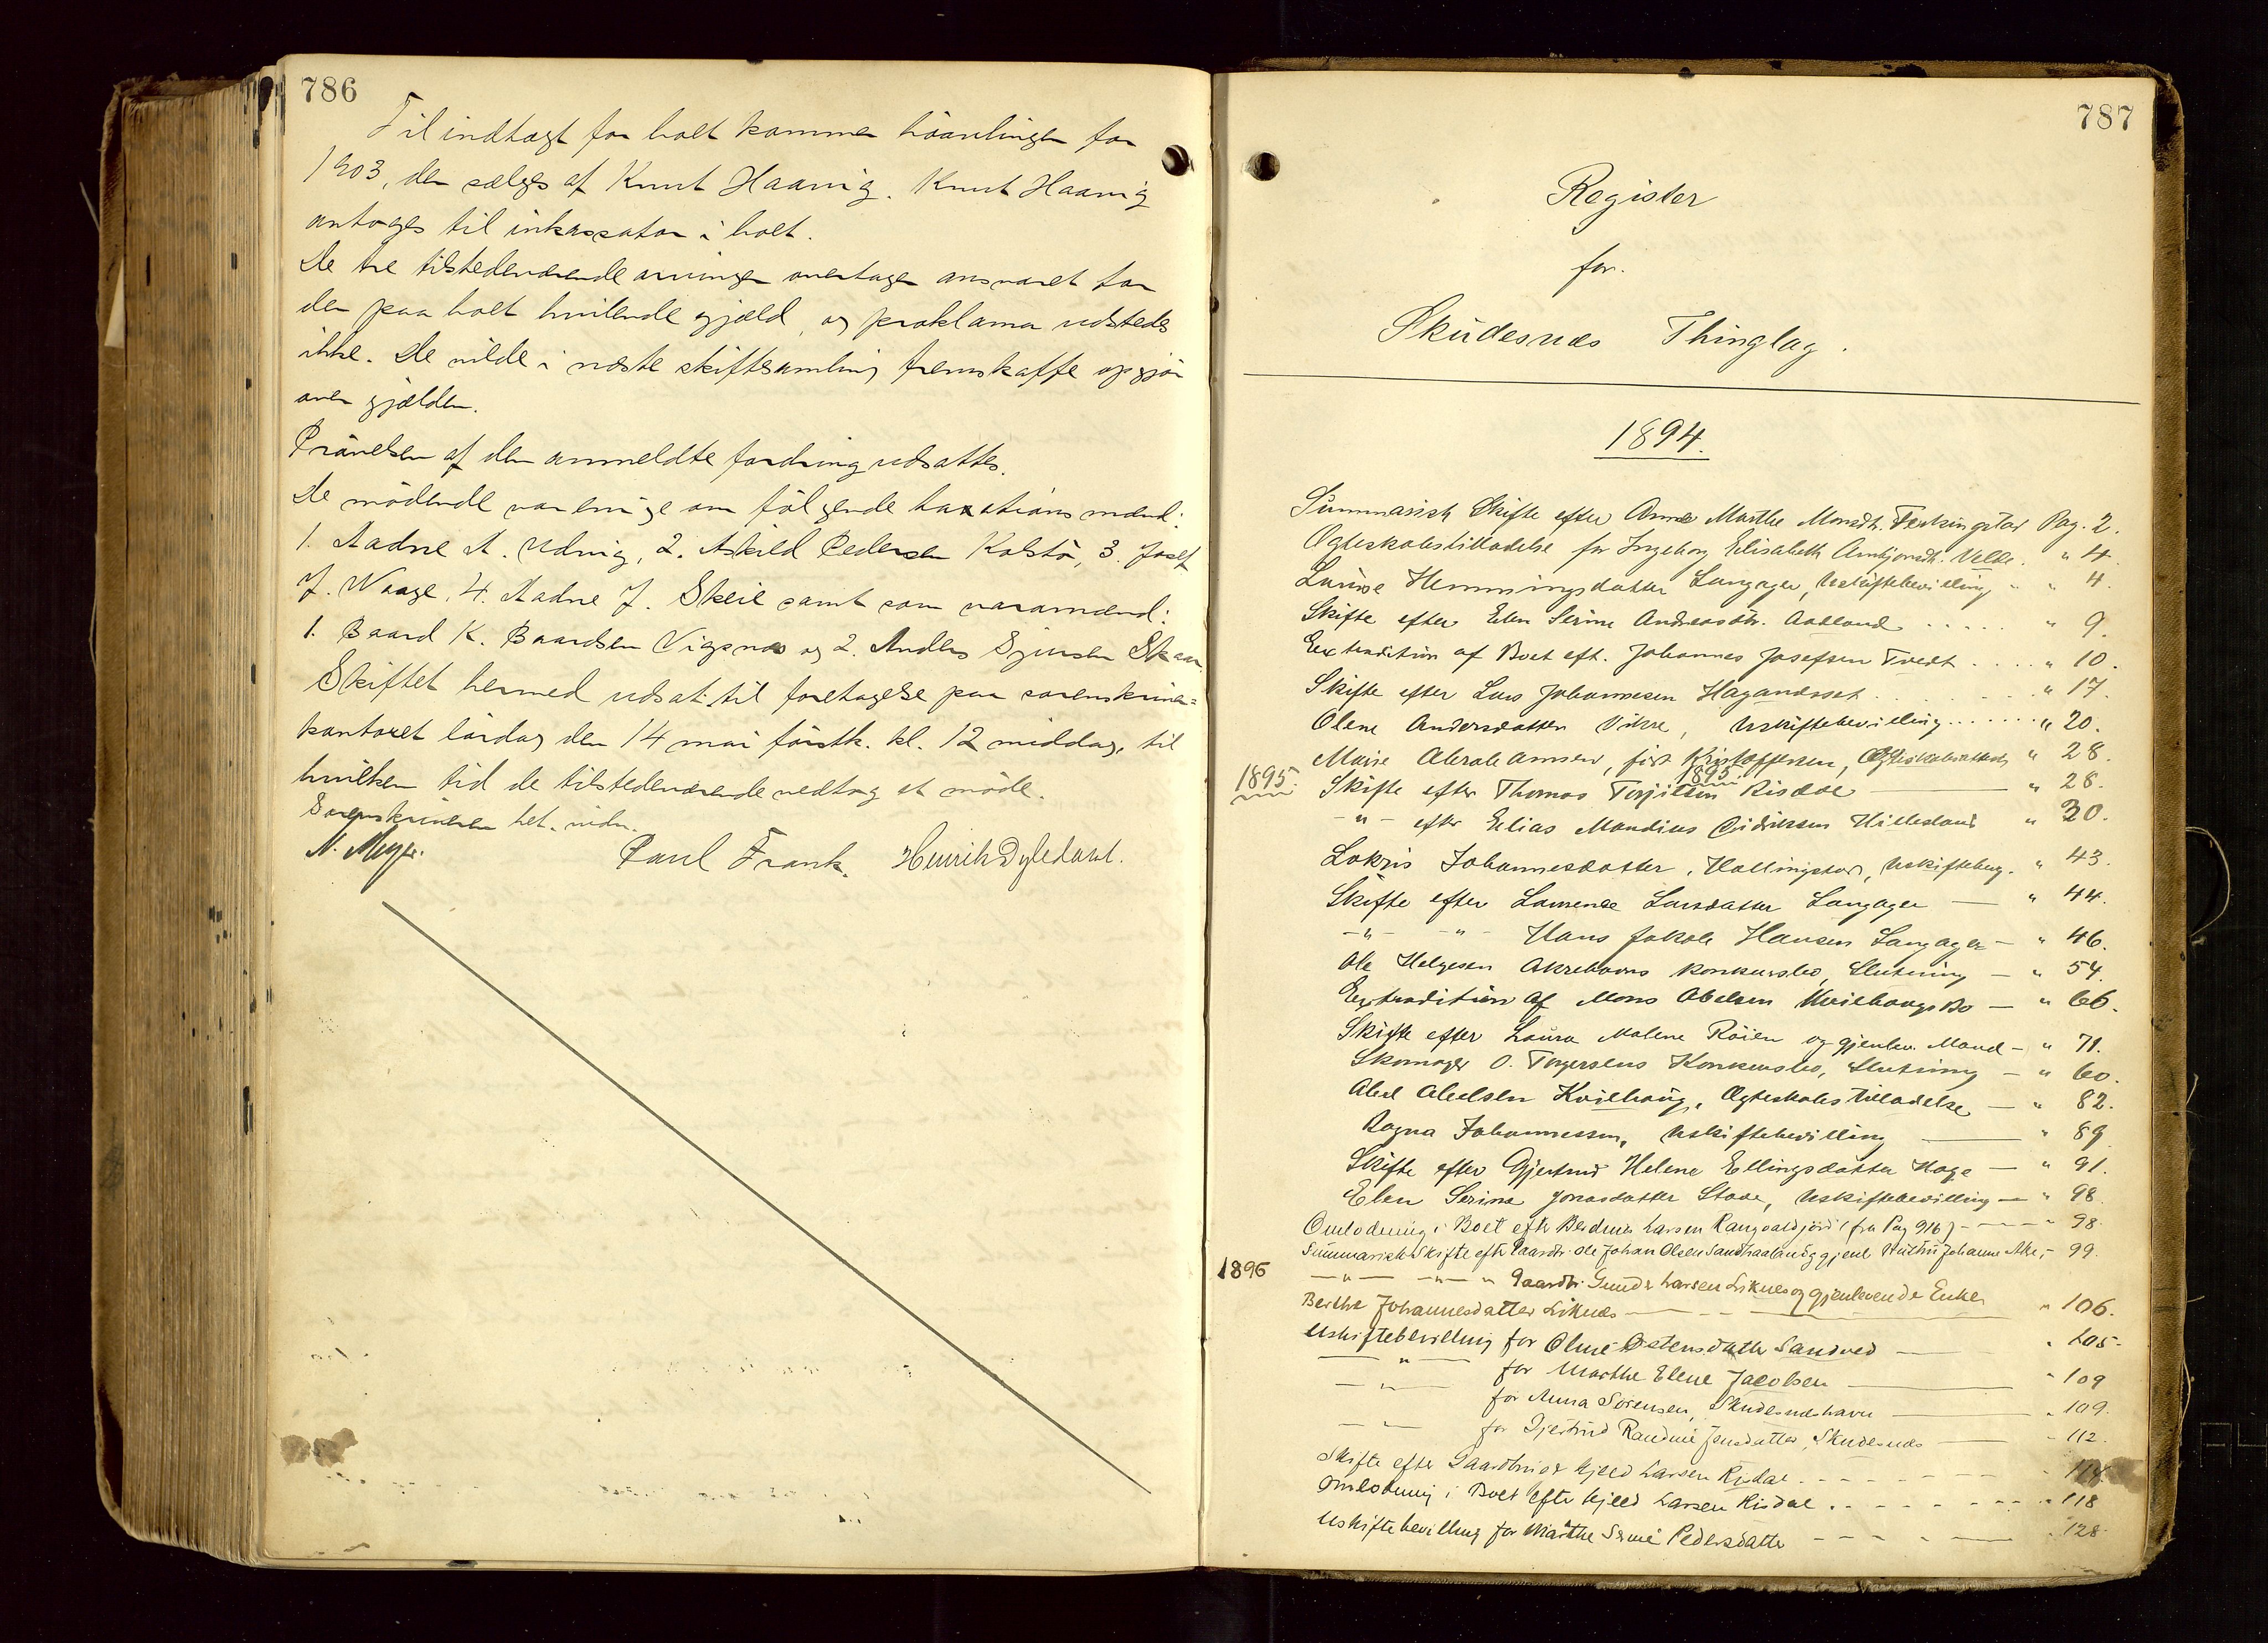 786
Til indtægt for boet kommer höavlingen for
1903, der sælges af Knut Haavig. Knut Haavig
antoges til inkassator i boet.
De tre tilstedeværende arvinger overtager ansvaret for
den paa boet hvilende gjæld, og proklama udstedes
ikke. De vilde i næste skiftesamling fremskaffe opgjör
over gjælden.
Prövelsen af den anmeldte fordring udsattes.
De mödende var enige om fölgende taxationsmænd:
1. Aadne A. Udvig, 2. Askild Pedersen Kolstö, 3. Josef
J. Waage, 4. Aadne J. Skeie samt som varamænd:
1. Baard K. Baardsen Vigsnes og 2. Anders Sjursen Skaar.
Skiftet hermed udsat til foretagelse paa sorenskriver=
kontoret lördag den 14 mai förstk. kl. 12 middag, til
hvilken tid de tilstedeværende vedtog at möde.
Sorenskriveren bet. vidn.
N. Meyer. Paul Frank. Henrik Dybdahl.
787
Register
for.
Skudesnæs Thinglag.
1894.
Summarisk Skifte efter Anne Marthe Monsdtr. Ferkingstad Pag. 2.
Ægteskabstilladelse for Ingeborg Elisabeth Ambjørnsdtr. Velde. " 4.
Lovise Hemmingsdatter Langager, Uskiftebevilling " 4.
Skifte efter Elen Serine Andreasdtr. Aadland ..... " 9.
Extradition af Boet eft. Johannes Josefsen Tvedt .... " 10.
Skifte efter Lars Johannesen Haganæsset " 17.
Olene Andersdatter Vikre, Uskiftebevilling ...... " 20.
Maire Abrahamsen, født Kristoffersen, " 28.
1895. Skifte efter Thomas Torjilsen 1895 Risdal " 28.
-"- efter Elias Mandius Hillesland " 30.
Johannesdatter, Hallingstad, Uskiftebevg. " 43.
Skifte efter Laurense Larsdatter Langager — " 44.
-"- -"- Hans Jakob Hansen Langager — " 46.
Ole Helgesen Akrehavns Konkursbo, Slutning — " 54.
Extradition af Mons Abelsen Kvilhaugs Bo — " 66.
Skifte efter Laura Malene Röien og gjenlev. Mand — " 71.
Skomager O. Torgersens Konkursbo, Slutning — " 60.
Abel Abelsen Kvilhaug, Ægteskabstilladelse — " 82.
Ragna Johannessen, Uskiftebevilling — " 89
Skifte efter Gjertrud Helene Ellingsdatter Hoge — " 91.
Elen Serine Jonasdatter Stave, Uskiftebevilling — " 98.
Omlodning i Boet efter Larsen (fra Pag 916) - - - " 98.
Summarisk Skifte efter Gaardbr. Ole Johan Olsen Sandhaaland og gjenl Hustru Johanne - 99.
1896 —"— —"— " Gaardbr. Gunder Larsen Liknes og gjenlevende Enke
Berthe Johannesdatter Liknæs " 106.
Uskiftebevilling for Oline Østensdatter Sandved — " 105-
—"— for Marthe Elene Jacobsen — " 109
—"— for Anna Sørensen, Skudesneshavn — " 109.
—"— for Gjertrud Randine Jensdatter, Skudesnæs — " 112.
Skifte efter Gaardbruger Kjeld Larsen Risdal. - - - 114
Omlodning i Boet efter Kjeld Larsen Risdal . - - - " 118
Uskiftebevilling for Marthe Serine Pedersdatter - - - - — " 128